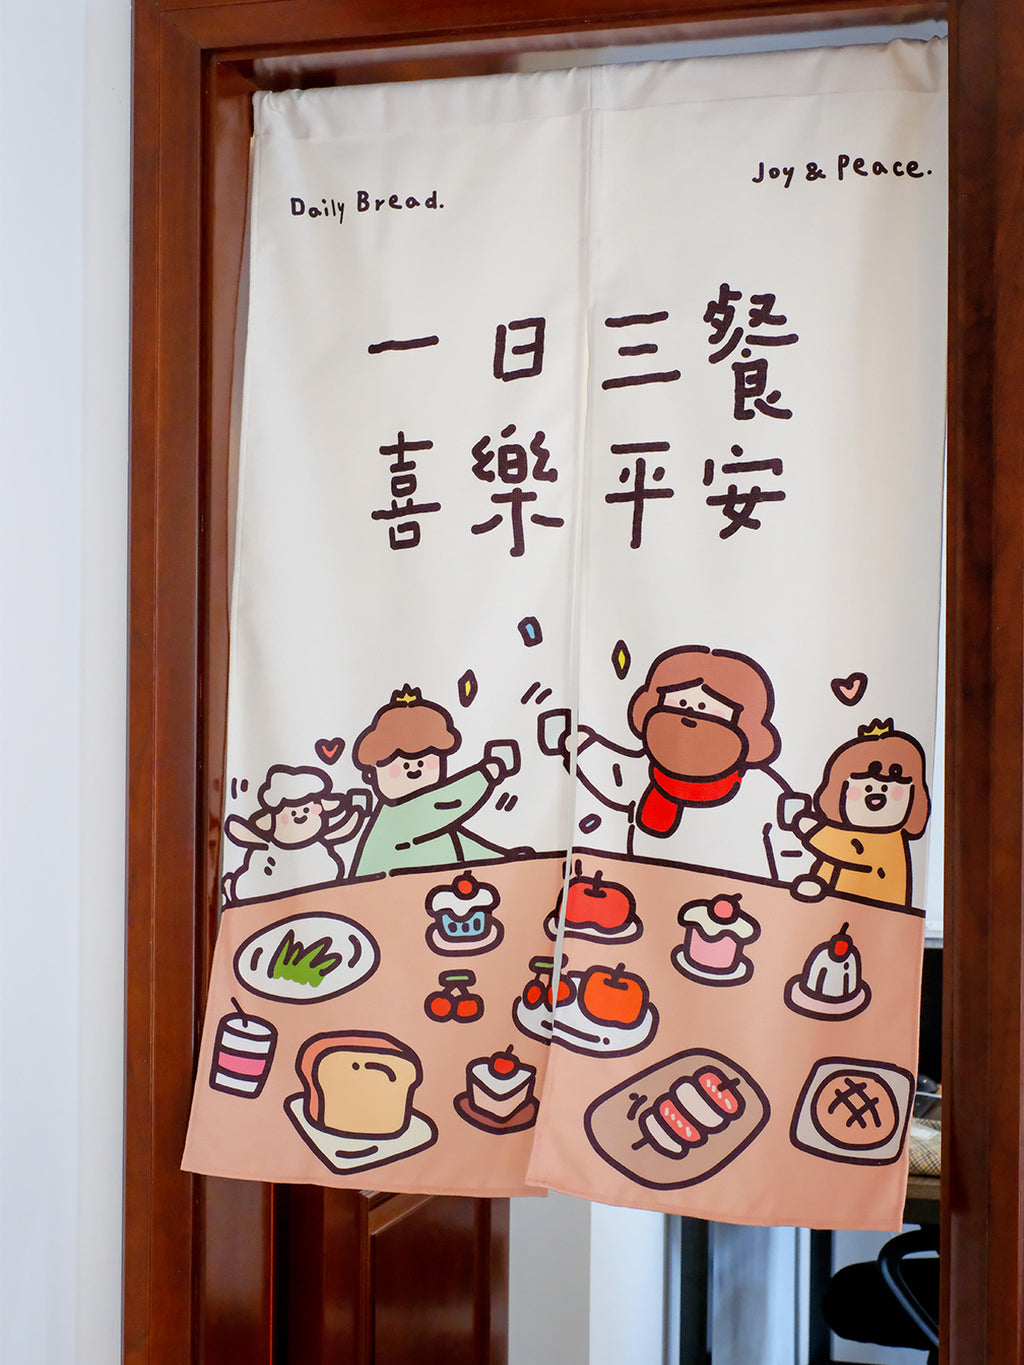 Daily Bread.
Joy & Peace.
一日三餐
喜樂平安